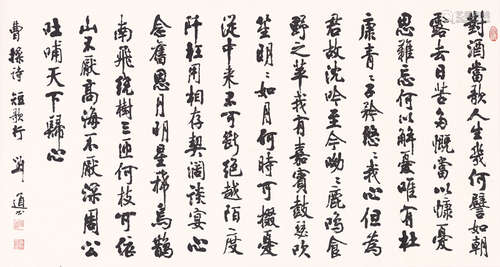 對酒當歌人生幾何譬如朝
露去日苦多慨當以慷憂
思難忘何以解憂唯有杜
康青〻子衿悠〻我心但為
君故沈吟至今呦〻鹿鳴食
野之苹我有嘉賓鼓瑟吹
笙明〻如月何時可掇憂
從中来不可斷絕越陌度
阡枉用相存契闊談宴心
念舊恩月明星稀烏鵲
南飛繞樹三匝何枝可依
山不厭高海不厭深周公
吐哺天下歸心
曹操詩 短歌行